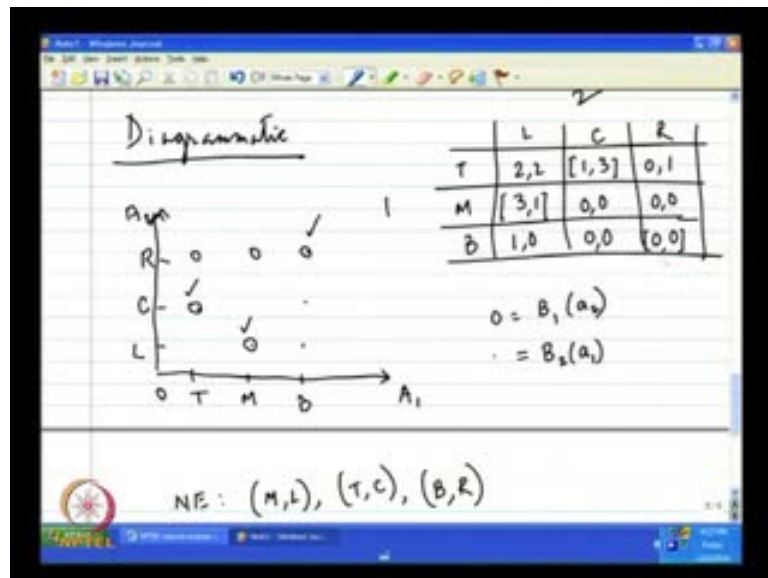 Note1 - Windows Journal
2
Diagrammatic
L C R
T 2,2 [1,3] 0,1
1 M [3,1] 0,0 0,0
B 1,0 0,0 [0,0]
A2
R
C
L
0 T M B A1
o = B1(a2)
· = B2(a1)
NE: (M,L), (T,C), (B,R)
NPTEL